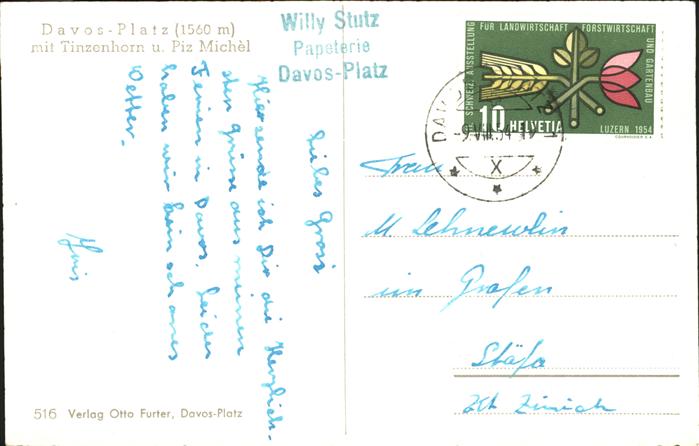 Davos-Platz (1560 m)
mit Tinzenhorn u. Piz Michèl
Willy Stutz
Papeterie
Davos-Platz
Liebes Grosi
Hier sende ich Dir die Herzlich-
sten Grüsse aus meinen
Ferien in Davos. Leider
haben wir kein schönes
Wetter.
X. SCHWEIZ. AUSSTELLUNG FÜR LANDWIRTSCHAFT FORSTWIRTSCHAFT UND GARTENBAU
LUZERN 1954
10 HELVETIA
COURVOISIER S.A.
DAV
-9.VIII.54
X
Frau
M.
im Grossen
Stäfa
Kt Zürich
516 Verlag Otto Furter, Davos-Platz